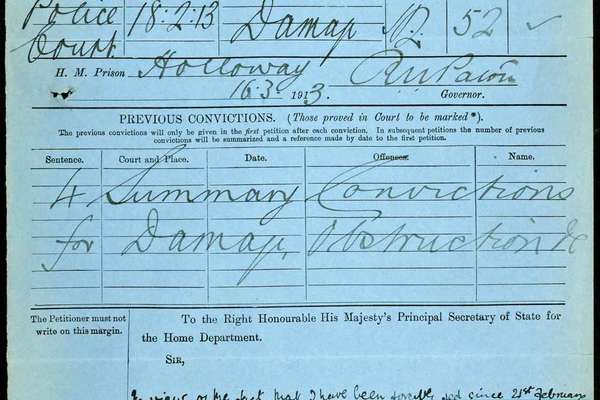 Police 18.2.13 Damage 52
Court
H. M. Prison Holloway
16.3 1913 Governor.
PREVIOUS CONVICTIONS. (Those proved in Court to be marked*).
The previous convictions will only be given in the first petition after each conviction. In subsequent petitions the number of previous
convictions will be summarized and a reference made by date to the first petition.
Sentence. Court and Place. Date. Offences. Name.
4 Summary Convictions
for Damage, Obstruction &c
The Petitioner must not
write on this margin.
To the Right Honourable His Majesty's Principal Secretary of State for
the Home Department.
SIR,
In view of the fact that I have been forcibly fed since 21st February